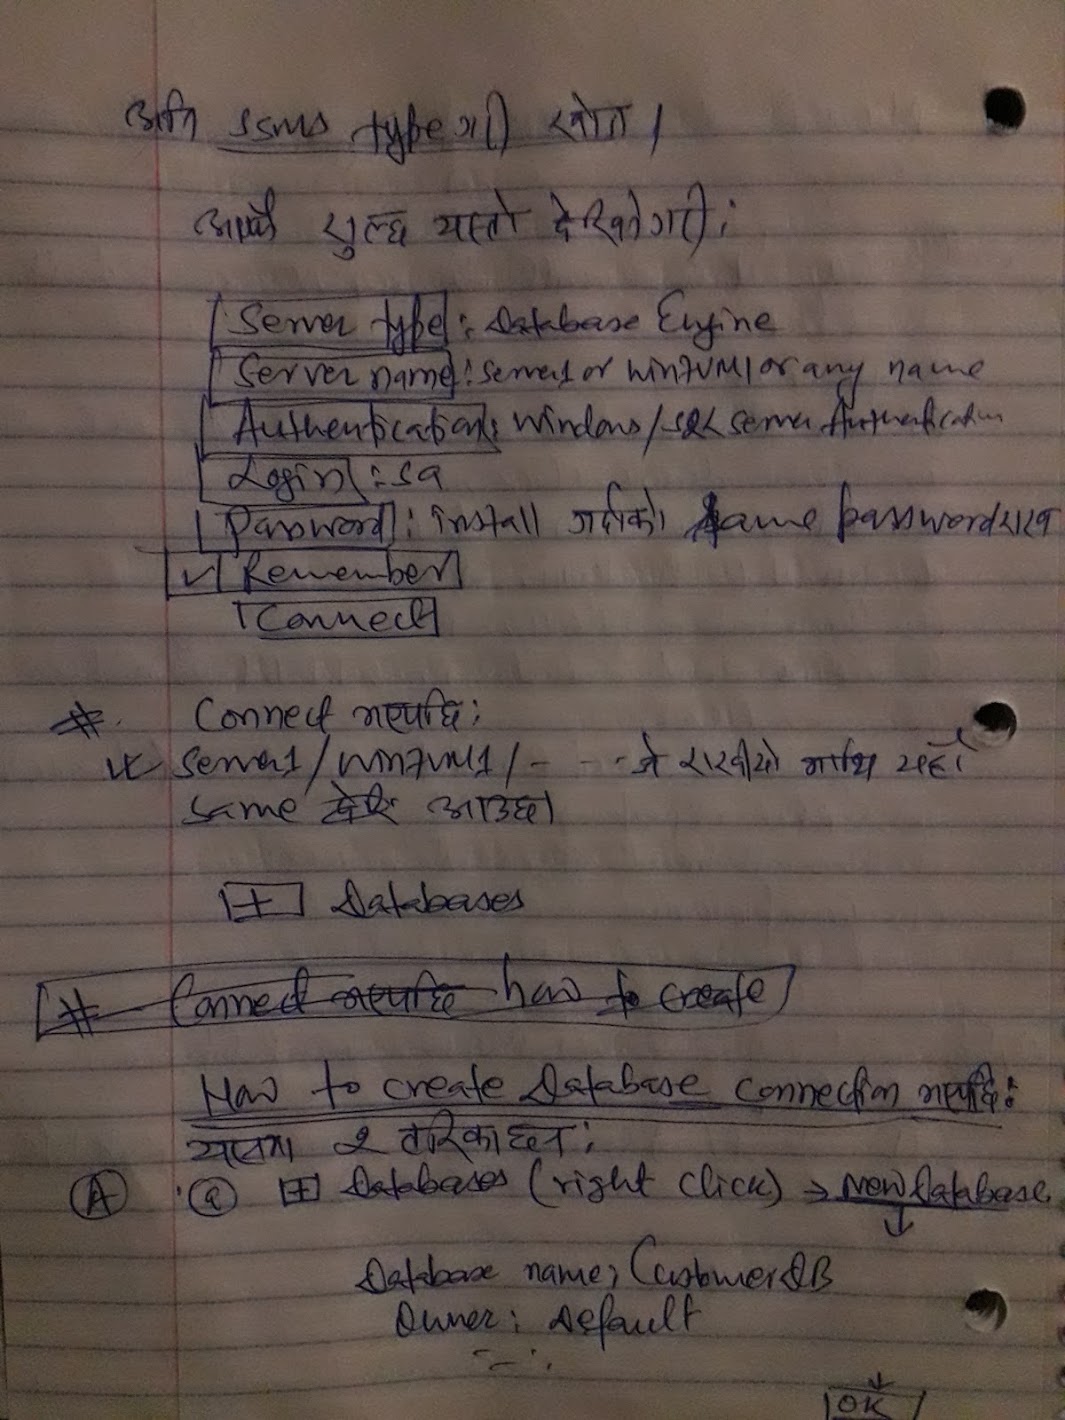 अनि SSMS type गरी खोज ।
आफै खुल्छ यस्तो देखिने गरी :
Server type : Database Engine
Server name : Server1 or Win7VM1 or any name
Authentication : Windows / SQL Server Authentication
Login : sa
Password : install गर्दाको same password राख
✓ Remember
Connect
# Connect भएपछि :
Server1 / Win7VM1 / - - - जे राखेको माथि त्यहाँ
same आउछ ।
+ Databases
# Connect भएपछि how to create
How to create Database connection भएपछि :
यसमा २ तरिका छन् :
A a + Databases (right click) → New Database
↓
Database name, CustomerDB
Owner : Default
↓
OK